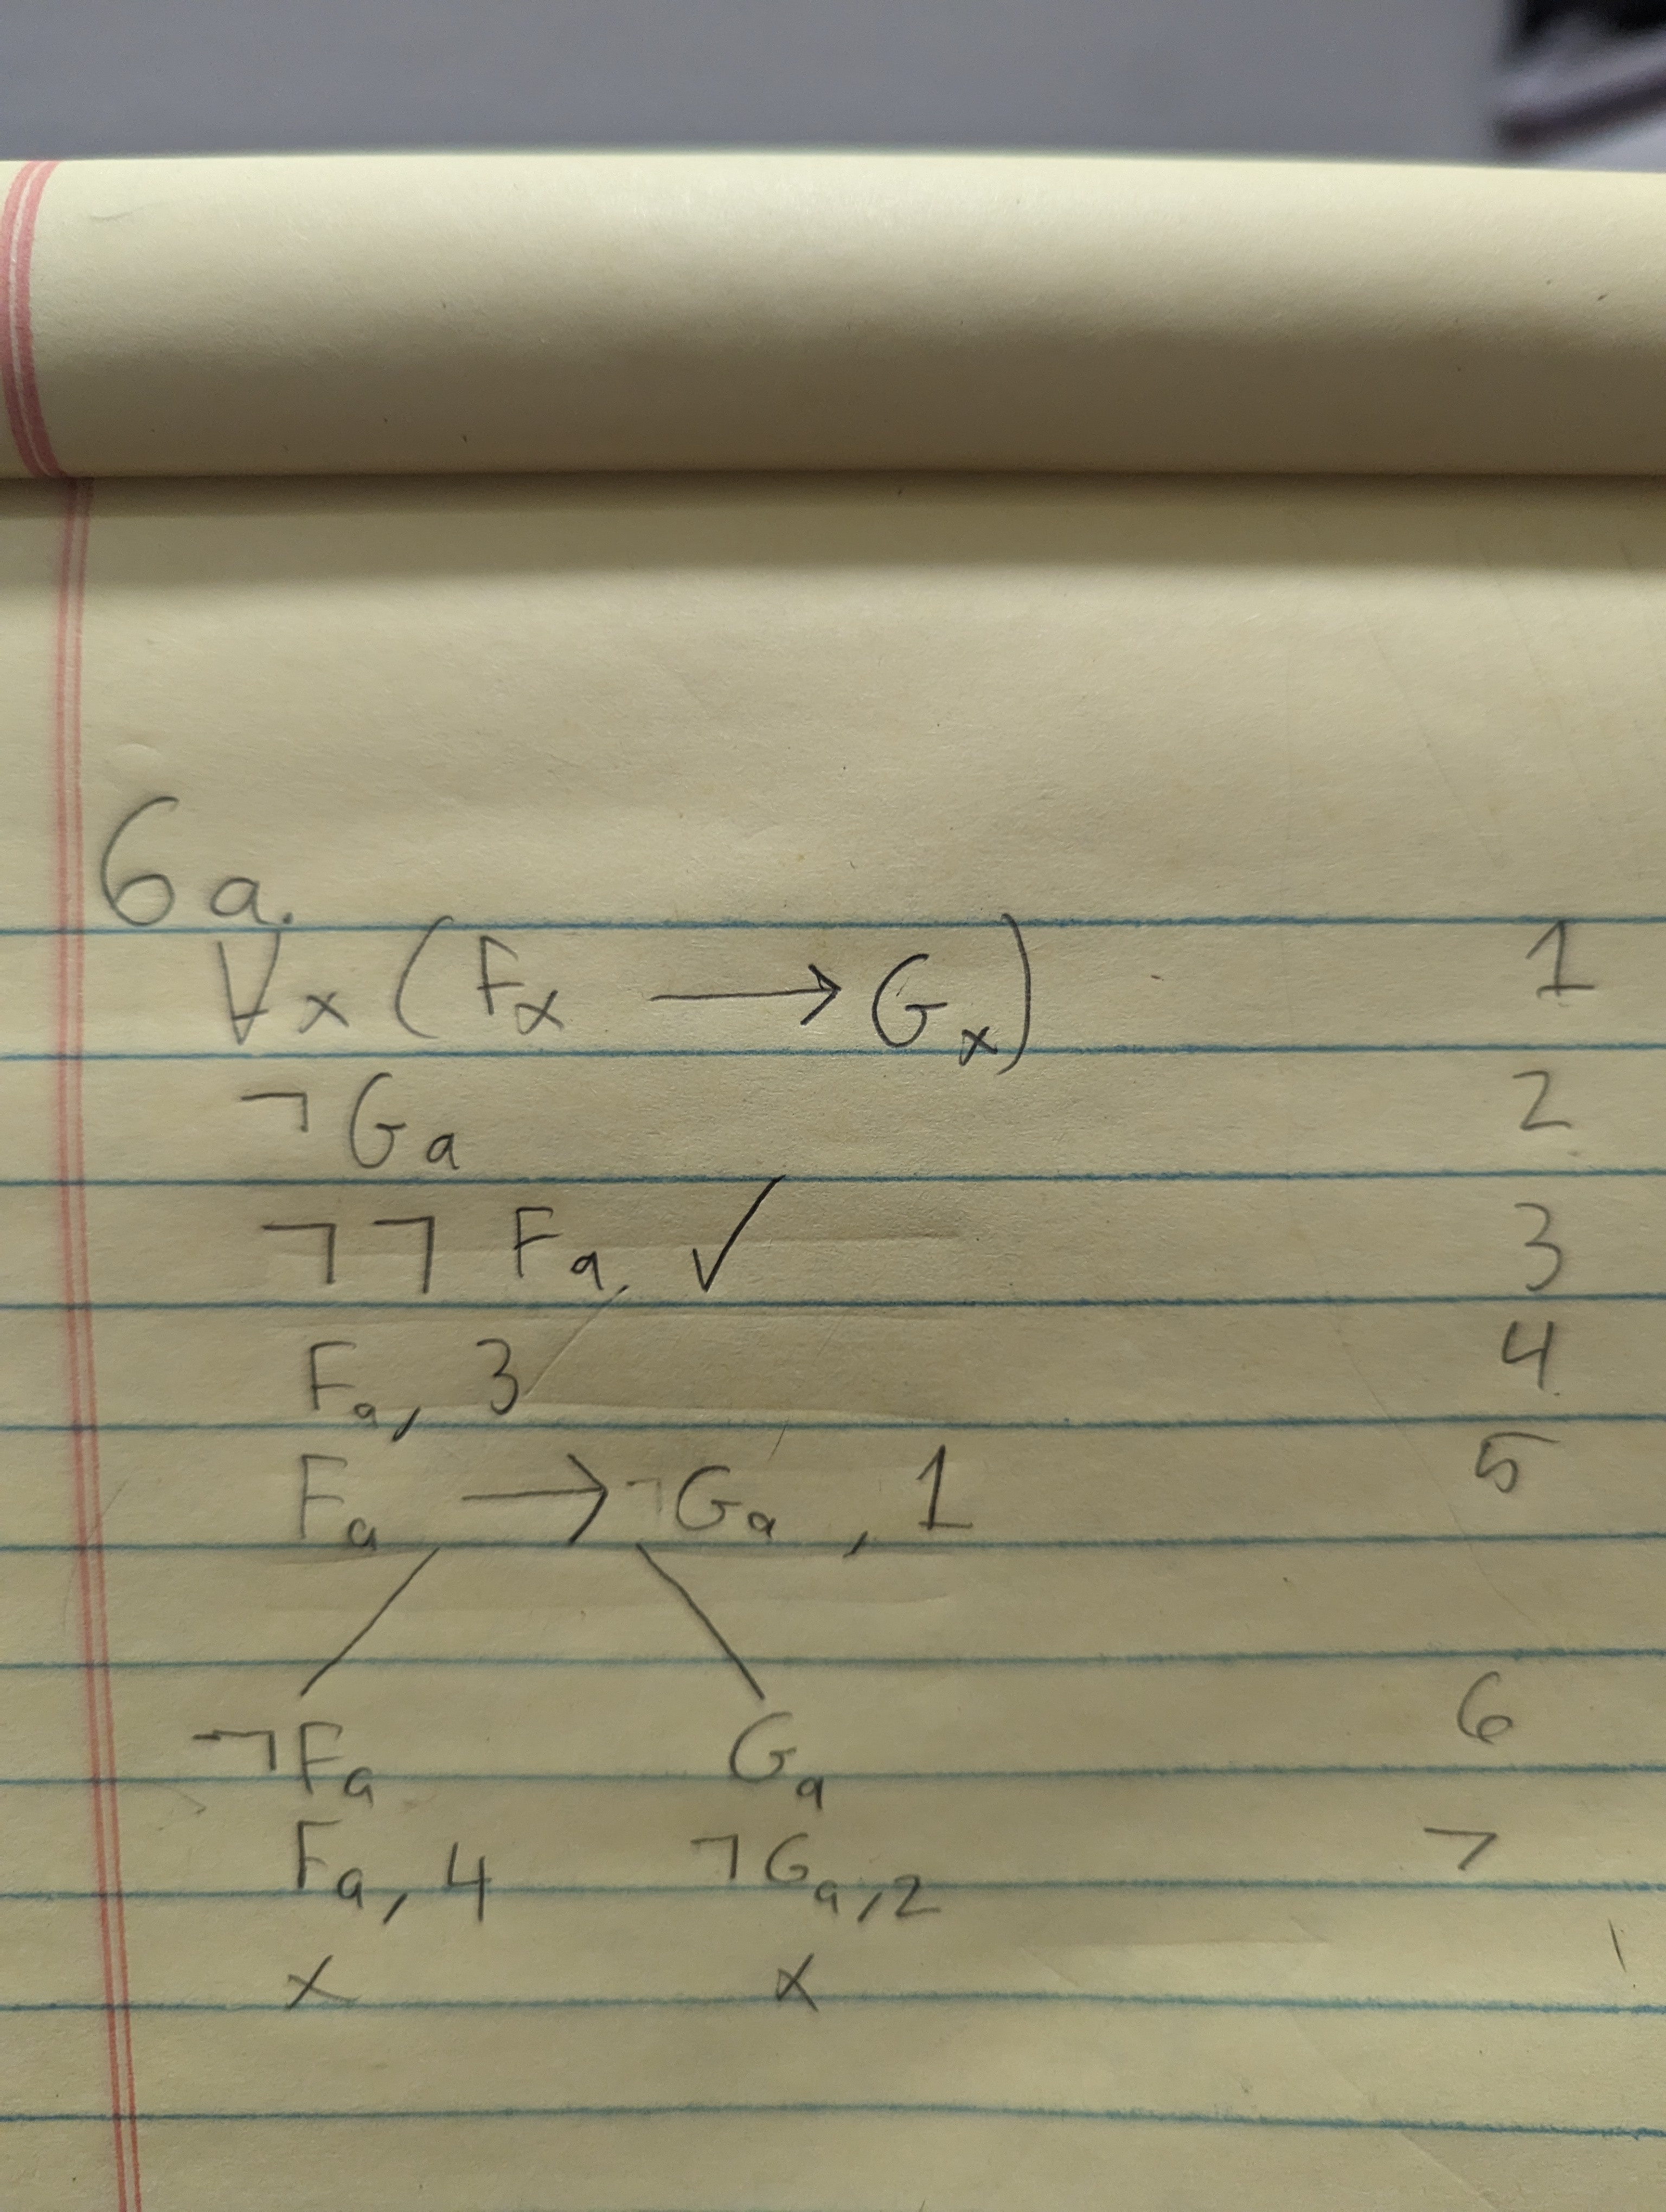 6a.
∀x (Fx → Gx) 1
¬Ga 2
¬¬Fa ✓ 3
Fa, 3 4
Fa → Ga, 1 5
¬Fa Ga 6
Fa, 4 ¬Ga, 2 7
x x